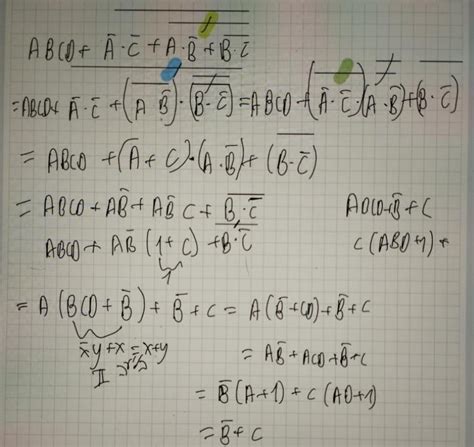 ABCD + A̅·C̅ + A·B̅ + B·C̅
= ABCD + A̅·C̅ + (A B̅)·(B·C̅) = ABCD + (A̅·C̅)·(A·B̅) + (B·C̅)
= ABCD + (A + C)·(A·B̅) + (B·C̅)
= ABCD + AB̅ + AB̅C + B·C̅
ABCD + AB̅(1+C) + B·C̅
1
ADCD + B̅ + C
C(ABD+1) +
= A(BCD + B̅) + B̅ + C = A(B̅ + CD) + B̅ + C
x̅y + x = x + y
II
= AB̅ + ACD + B̅ + C
= B̅(A+1) + C(AD+1)
= B̅ + C